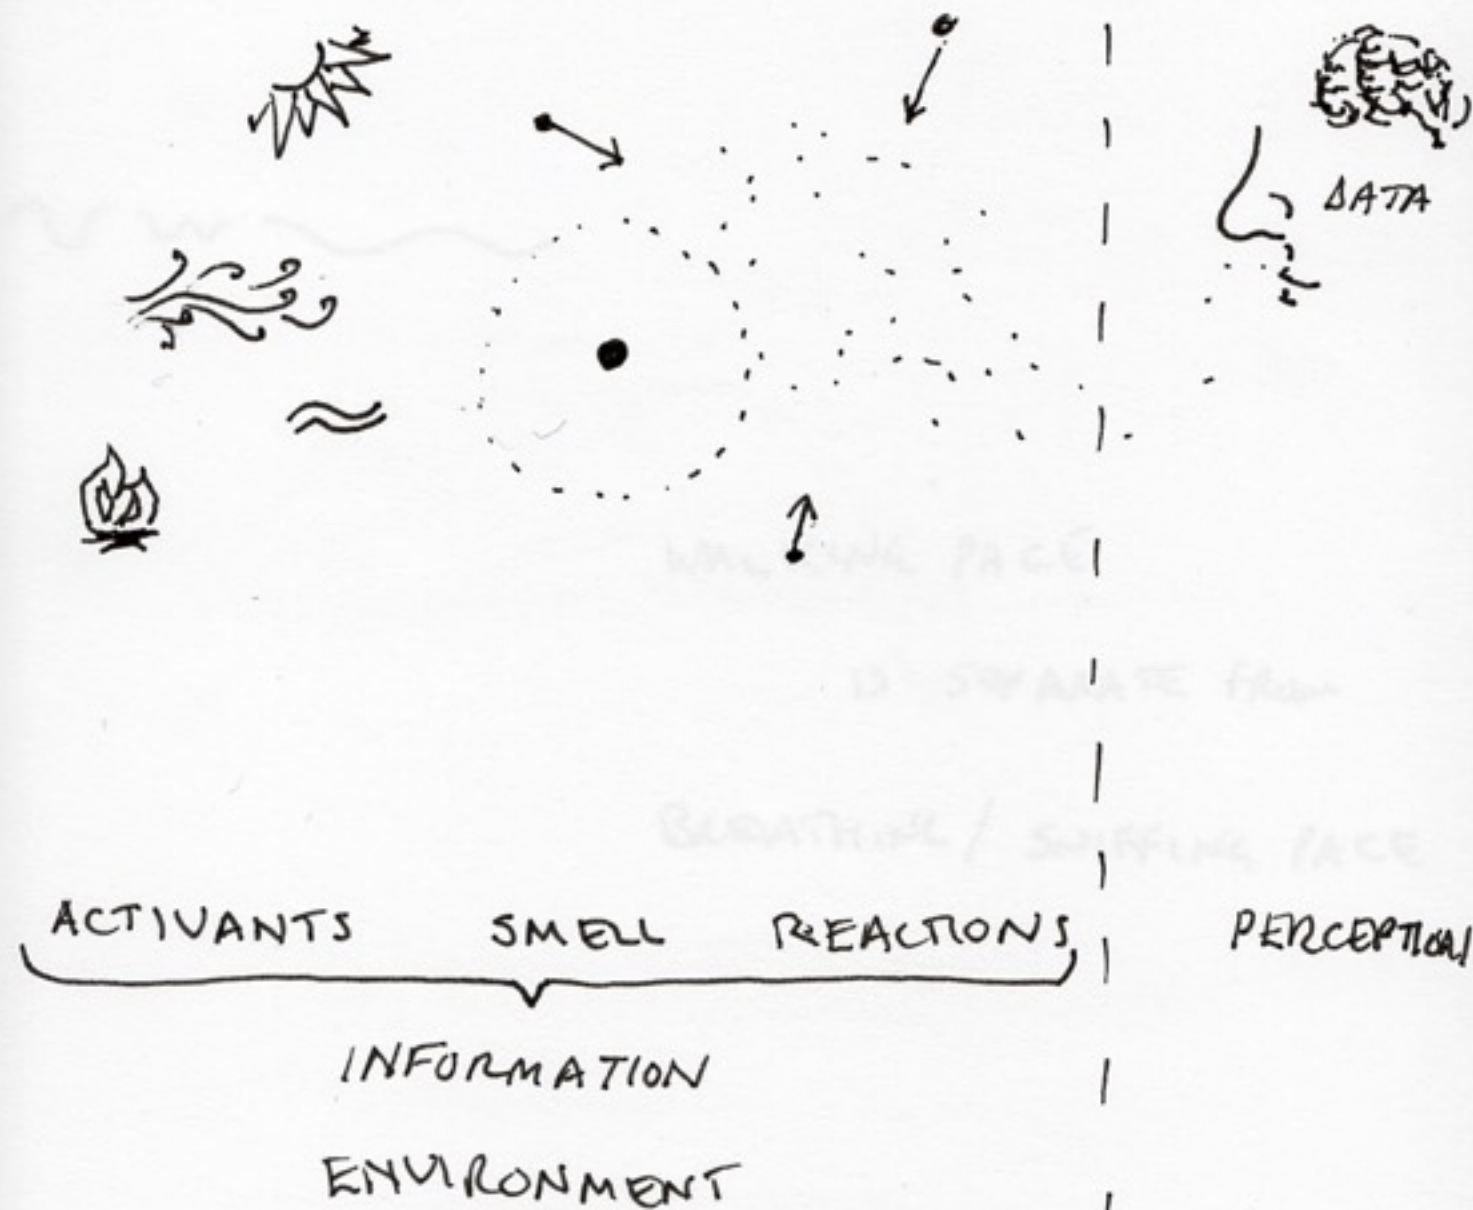 DATA
WALKING PACE
IS SEPARATE FROM
BREATHING / SNIFFING PACE
ACTIVANTS SMELL REACTIONS PERCEPTION
INFORMATION
ENVIRONMENT